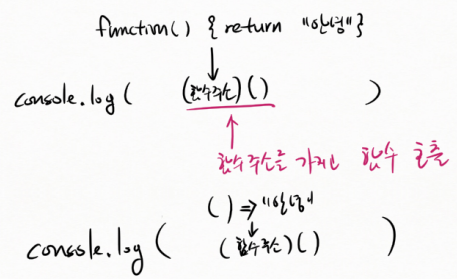 function() { return "안녕"}
console.log( (함수주소)() )
함수주소를 가지고 함수 호출
() => "안녕"
console.log( (함수주소)() )